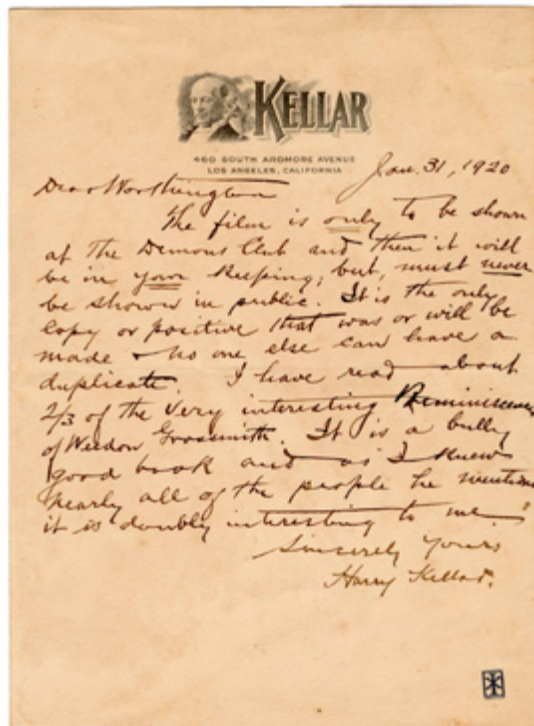 KELLAR
460 SOUTH ARDMORE AVENUE
LOS ANGELES, CALIFORNIA
Jan. 31, 1920
Dear Worthington
The film is only to be shown
at the Demons Club and then it will
be in your keeping; but, must never
be shown in public. It is the only
copy or positive that was or will be
made & no one else can have a
duplicate. I have read about
2/3 of the very interesting Reminiscences
of Weedon Grossmith. It is a bully
good book and as I knew
nearly all of the people he mentions
it is doubly interesting to me.
Sincerely Yours
Harry Kellar.